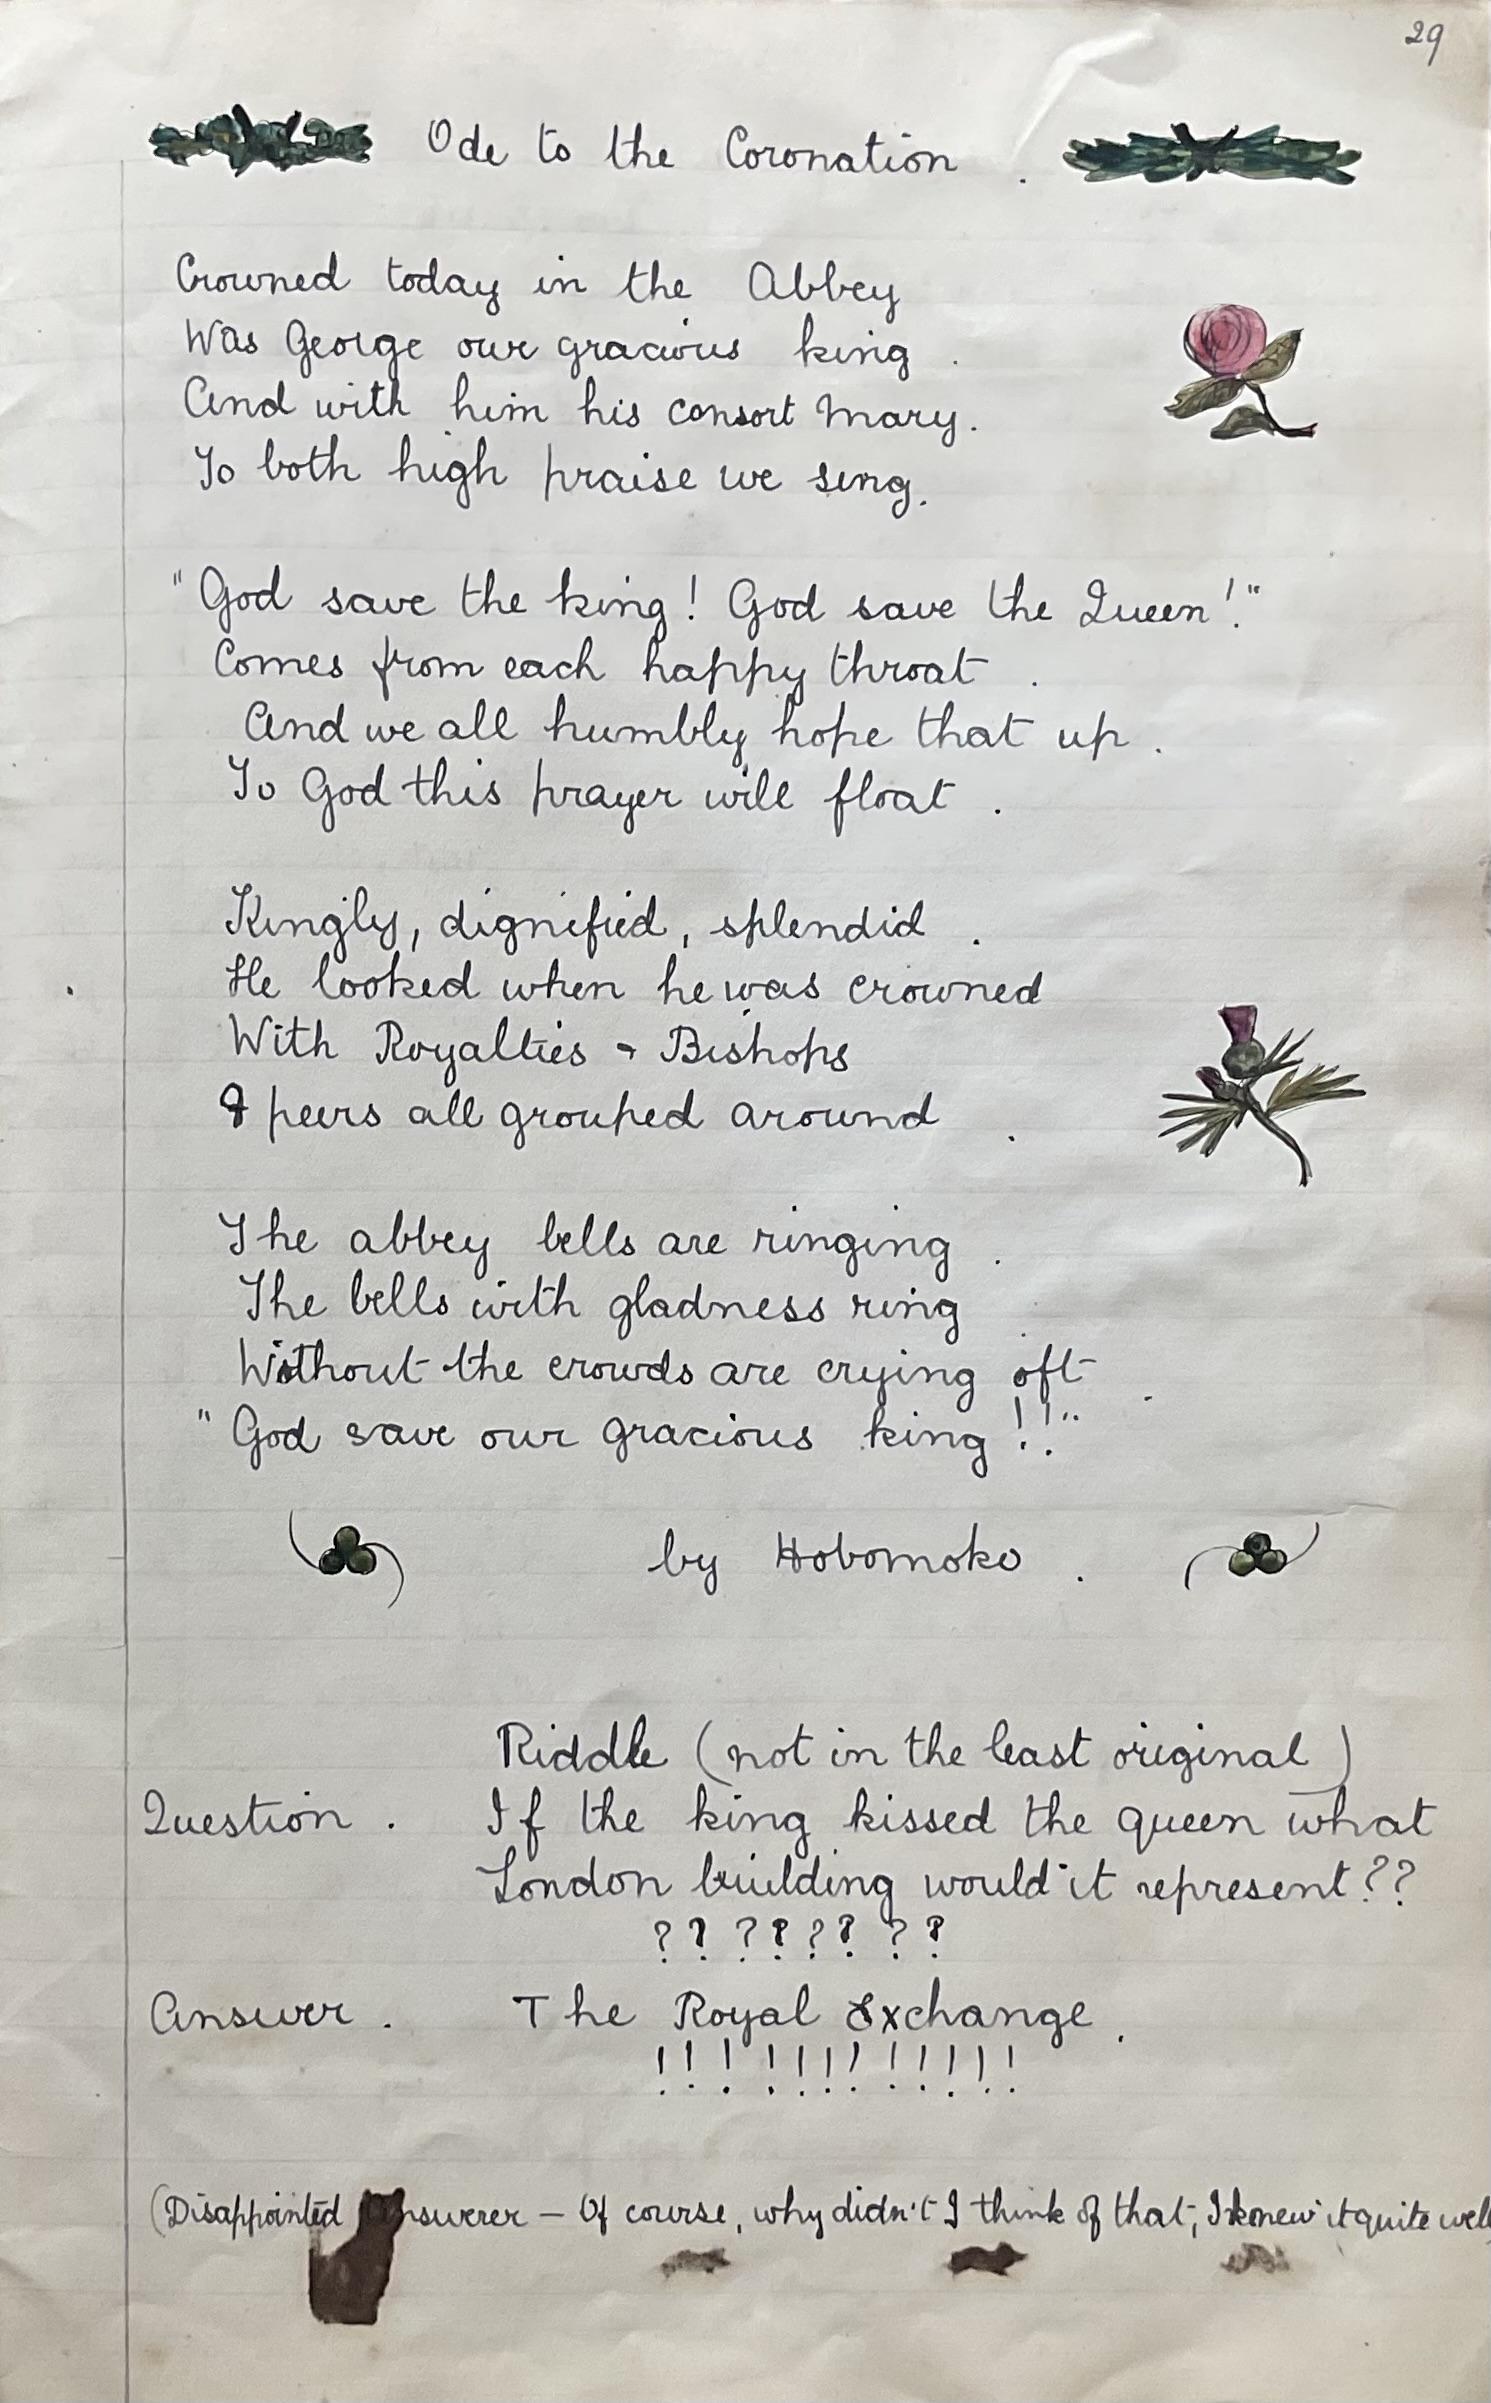 29
Ode to the Coronation .
Crowned today in the Abbey
Was George our gracious king .
And with him his consort Mary.
To both high praise we sing.
"God save the king! God save the Queen!"
Comes from each happy throat .
And we all humbly hope that up .
To God this prayer will float .
Kingly, dignified, splendid .
He looked when he was crowned
With Royalties & Bishops
& peers all grouped around .
The abbey bells are ringing .
The bells with gladness ring .
Without the crowds are crying oft .
"God save our gracious king!!"
by Hobomoko .
Riddle (not in the least original)
Question . If the king kissed the queen what
London building would it represent??
? ? ? ? ? ? ? ?
Answer . The Royal Exchange .
! ! ! ! ! ! ! ! ! ! ! ! !
(Disappointed Answerer — Of course, why didn't I think of that, I knew it quite well